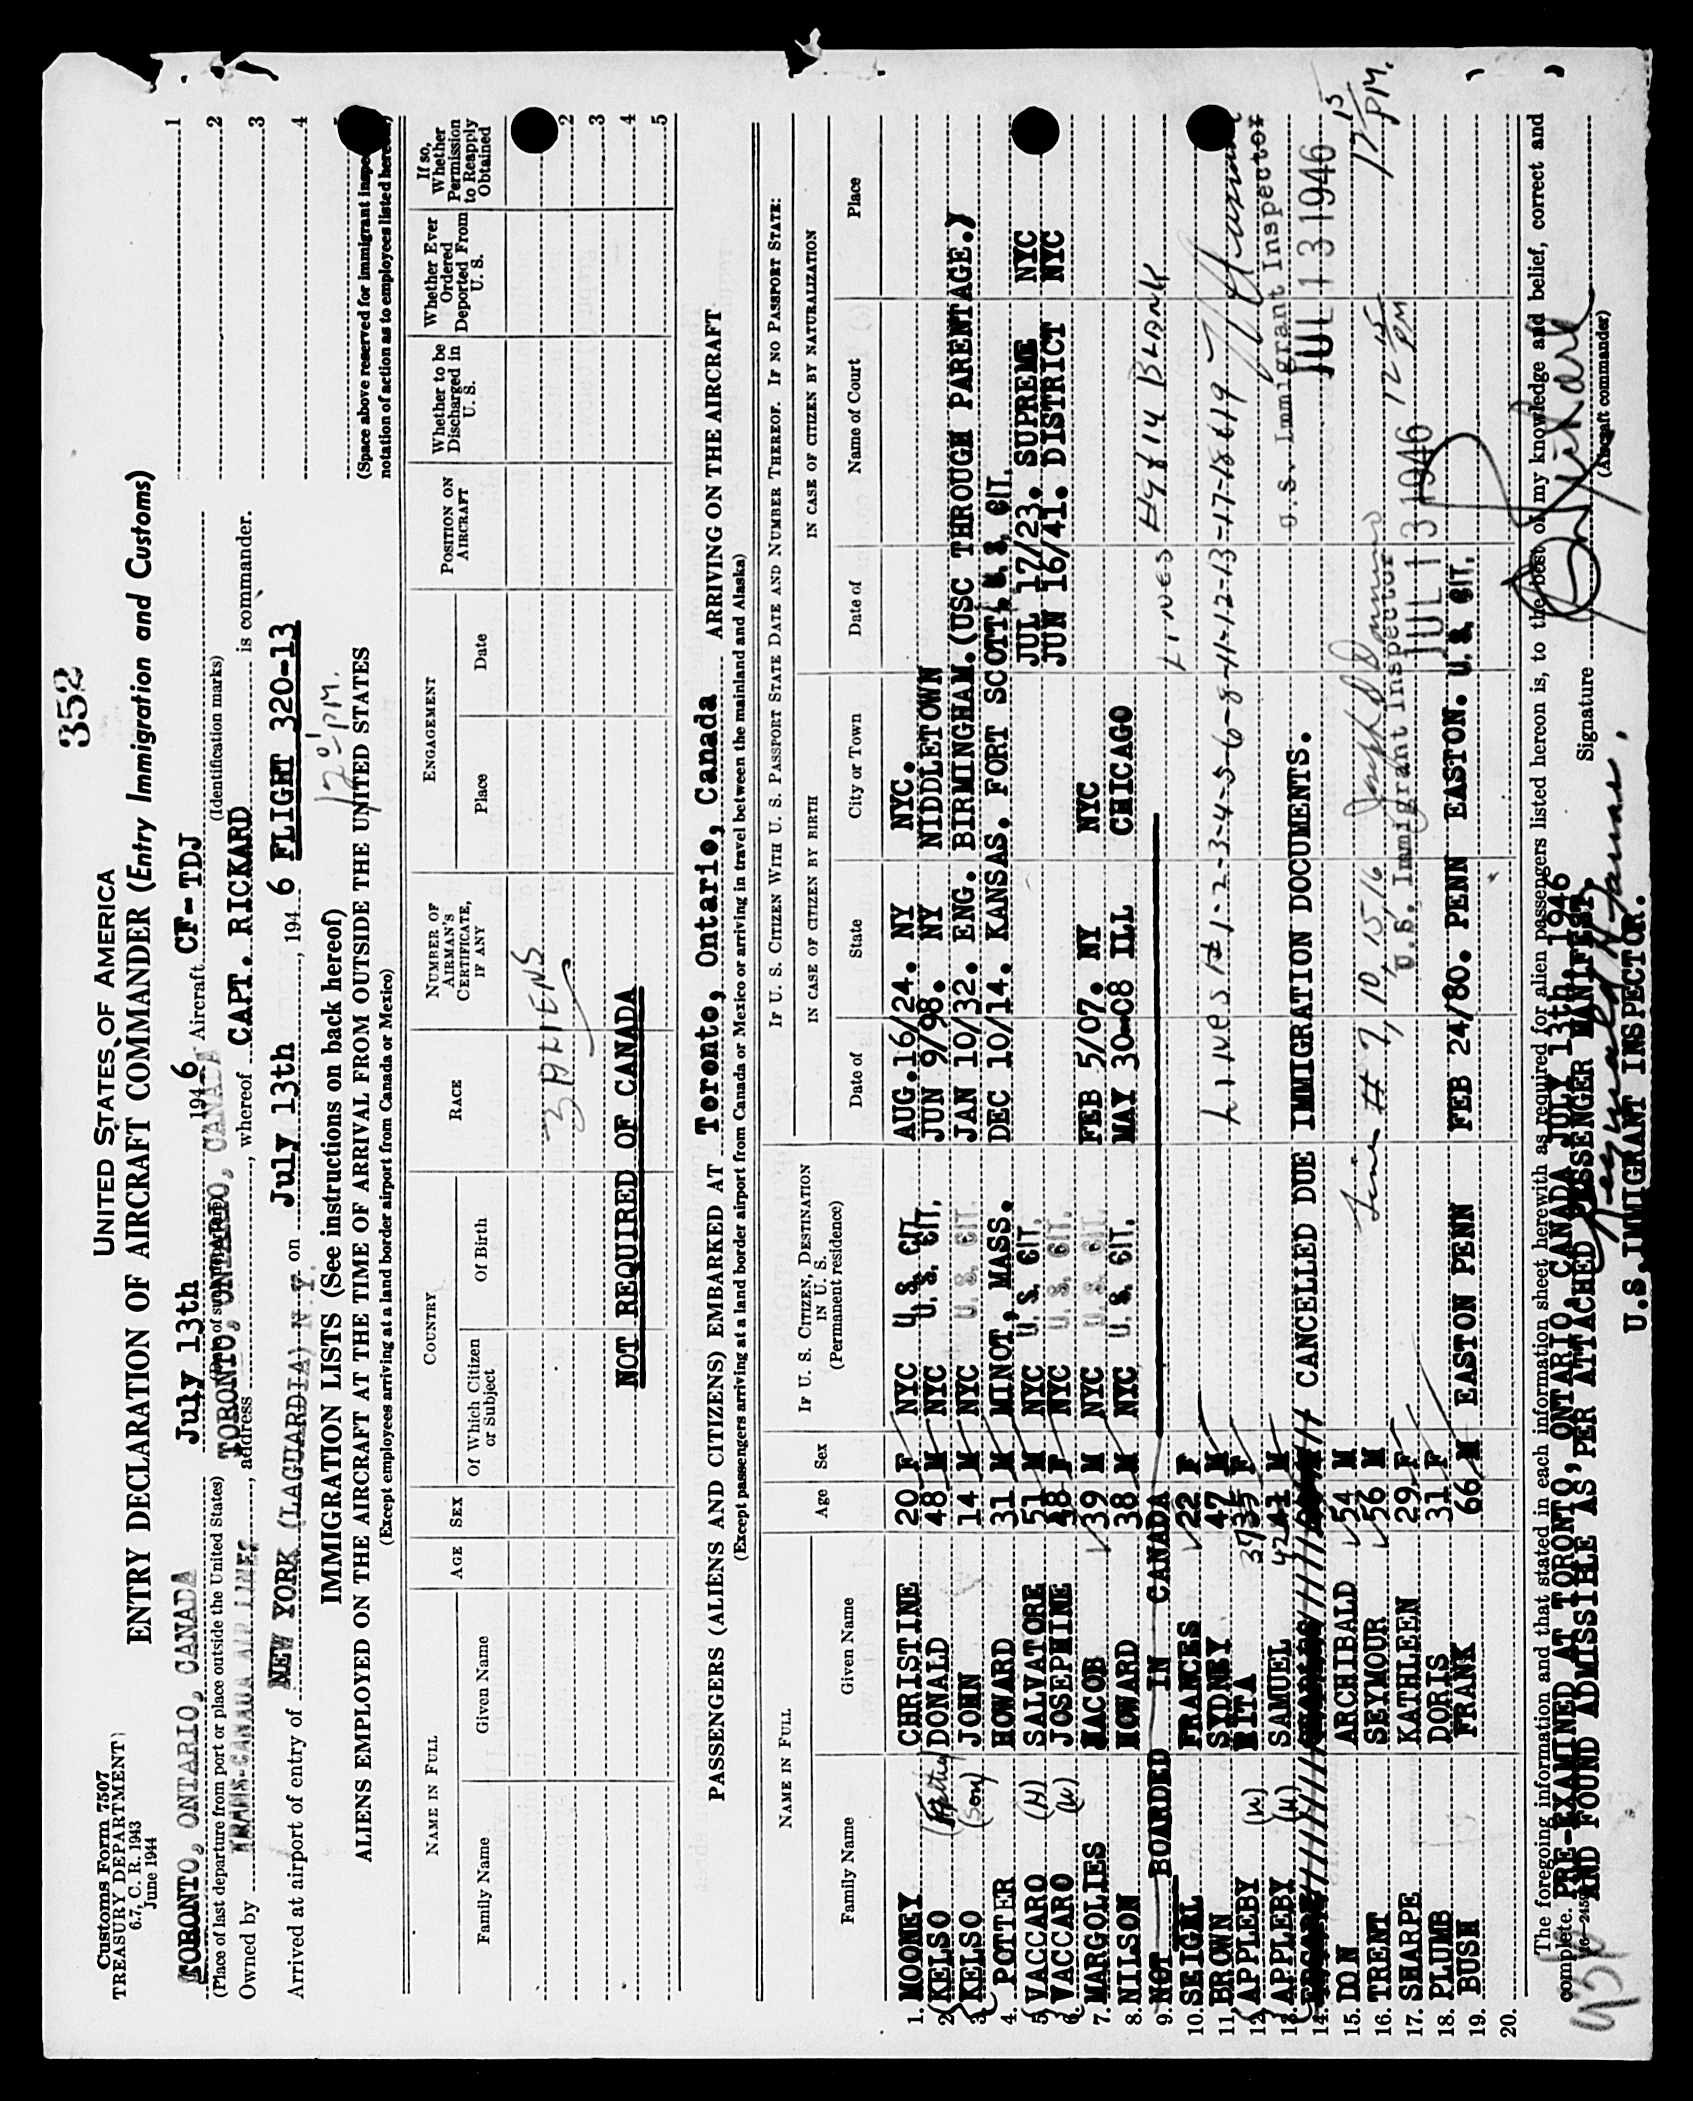 352
UNITED STATES OF AMERICA
Customs Form 7507
TREASURY DEPARTMENT
6.7, C. R. 1943
June 1944
ENTRY DECLARATION OF AIRCRAFT COMMANDER (Entry Immigration and Customs)
TORONTO, ONTARIO, CANADA July 13th 1946 Aircraft CF-TDJ
(Place of last departure from port or place outside the United States) (Identification marks)
TORONTO, ONTARIO, CANADA
Owned by TRANS-CANADA AIR LINES, address, whereof CAPT. RICKARD is commander.
Arrived at airport of entry of NEW YORK (LAGUARDIA) N.Y. on July 13th, 1946 FLIGHT 320-13
1
2
3
4
(Space above reserved for immigrant
notation of action as to employees listed
IMMIGRATION LISTS (See instructions on back hereof)
ALIENS EMPLOYED ON THE AIRCRAFT AT THE TIME OF ARRIVAL FROM OUTSIDE THE UNITED STATES
(Except employees arriving at a land border airport from Canada or Mexico)
NAME IN FULL
Family Name Given Name
AGE
SEX
COUNTRY
Of Which Citizen or Subject Of Birth
RACE
NUMBER OF AIRMAN'S CERTIFICATE, IF ANY
ENGAGEMENT
Place Date
POSITION ON AIRCRAFT
Whether to be Discharged in U. S.
Whether Ever Ordered Deported From U. S.
If so, Whether Permission to Reapply Obtained
3 ALIENS
2
3
NOT REQUIRED OF CANADA 4
5
PASSENGERS (ALIENS AND CITIZENS) EMBARKED AT Toronto, Ontario, Canada ARRIVING ON THE AIRCRAFT
(Except passengers arriving at a land border airport from Canada or Mexico or arriving in travel between the mainland and Alaska)
NAME IN FULL
Family Name Given Name
Age
Sex
IF U. S. CITIZEN, DESTINATION IN U. S. (Permanent residence)
IF U. S. CITIZEN WITH U. S. PASSPORT STATE DATE AND NUMBER THEREOF. IF NO PASSPORT STATE:
IN CASE OF CITIZEN BY BIRTH
Date of State City or Town
IN CASE OF CITIZEN BY NATURALIZATION
Date of Name of Court Place
1. MOONEY CHRISTINE 20 F NYC U.S. CIT. AUG.16/24. NY NYC.
2. KELSO DONALD 48 M NYC U.S. CIT. JUN 9/98. NY NIDDLETOWN
3. KELSO (son) JOHN 14 M NYC U.S. CIT. JAN 10/32. ENG. BIRMINGHAM.(USC THROUGH PARENTAGE.)
4. POTTER HOWARD 31 M MINOT, MASS. DEC 10/14. KANSAS. FORT SCOTT. U.S. CIT.
5. VACCARO (H) SALVATORE 51 M NYC U.S. CIT. JUL 17/23. SUPREME NYC
6. VACCARO (W) JOSEPHINE 48 F NYC U.S. CIT. JUN 16/41. DISTRICT NYC
7. MARGOLIES HACOB 39 M NYC U.S. CIT. FEB 5/07. NY NYC
8. NILSON HOWARD 38 M NYC U.S. CIT. MAY 30-08 ILL CHICAGO
9. NOT BOARDED IN CANADA LINES #9 & 14 BLANK
10. SEIGAL FRANCES 22 F
11. BROWN SYDNEY 47 M LINES # 1-2-3-4-5-6-8-11-12-13-17-18 & 19
12. APPLEBY (W) RITA 37 F
13. APPLEBY (H) SAMUEL 42 M U.S. Immigrant Inspector
14. CANCELLED DUE IMMIGRATION DOCUMENTS. JUL 13 1946
15. DON ARCHIBALD 54 M
16. TRENT SEYMOUR 56 M Line # 7, 10, 15, 16 12 15 PM 12 15 PM.
17. SHARPE KATHLEEN 29 F U.S. Immigrant Inspector JUL 13 1946
18. PLUMB DORIS 31 F
19. BUSH FRANK 66 M EASTON PENN FEB 24/80. PENN EASTON. U.S. CIT.
20.
The foregoing information and that stated in each information sheet herewith as required for alien passengers listed hereon is, to the best of my knowledge and belief, correct and
complete.
PRE-EXAMINED AT TORONTO, ONTARIO, CANADA JULY 13th, 1946
AND FOUND ADMISSIBLE AS PER ATTACHED PASSENGER MANIFEST,
Signature
(Aircraft commander)
U.S. IMMIGRANT INSPECTOR.